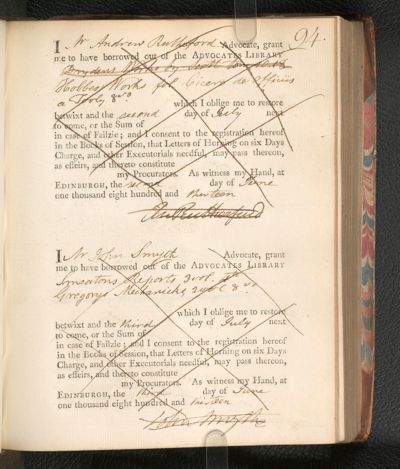 94.
I Mr Andrew Rutherford Advocate, grant
me to have borrowed out of the ADVOCATES LIBRARY
Drydens Works by Scott
Hobbes Works fol Cicero de Officiis
a Tooly 8vo
which I oblige me to restore
betwixt and the second day of July next
to come, or the Sum of
in case of Failzie; and I consent to the registration hereof
in the Books of Session, that Letters of Horning on six Days
Charge, and other Executorials needful, may pass thereon,
as effeirs, and thereto constitute
my Procurators. As witness my Hand, at
EDINBURGH, the second day of June
one thousand eight hundred and thirteen
And Rutherfurd
I Mr John Smyth Advocate, grant
me to have borrowed out of the ADVOCATES LIBRARY
Reports 3 vol.
Gregorys Mechanicks 3 vol 8vo
which I oblige me to restore
betwixt and the third day of July next
to come, or the Sum of
in case of Failzie; and I consent to the registration hereof
in the Books of Session, that Letters of Horning on six Days
Charge, and other Executorials needful, may pass thereon,
as effeirs, and thereto constitute
my Procurators. As witness my Hand, at
EDINBURGH, the third day of June
one thousand eight hundred and thirteen
John Smyth